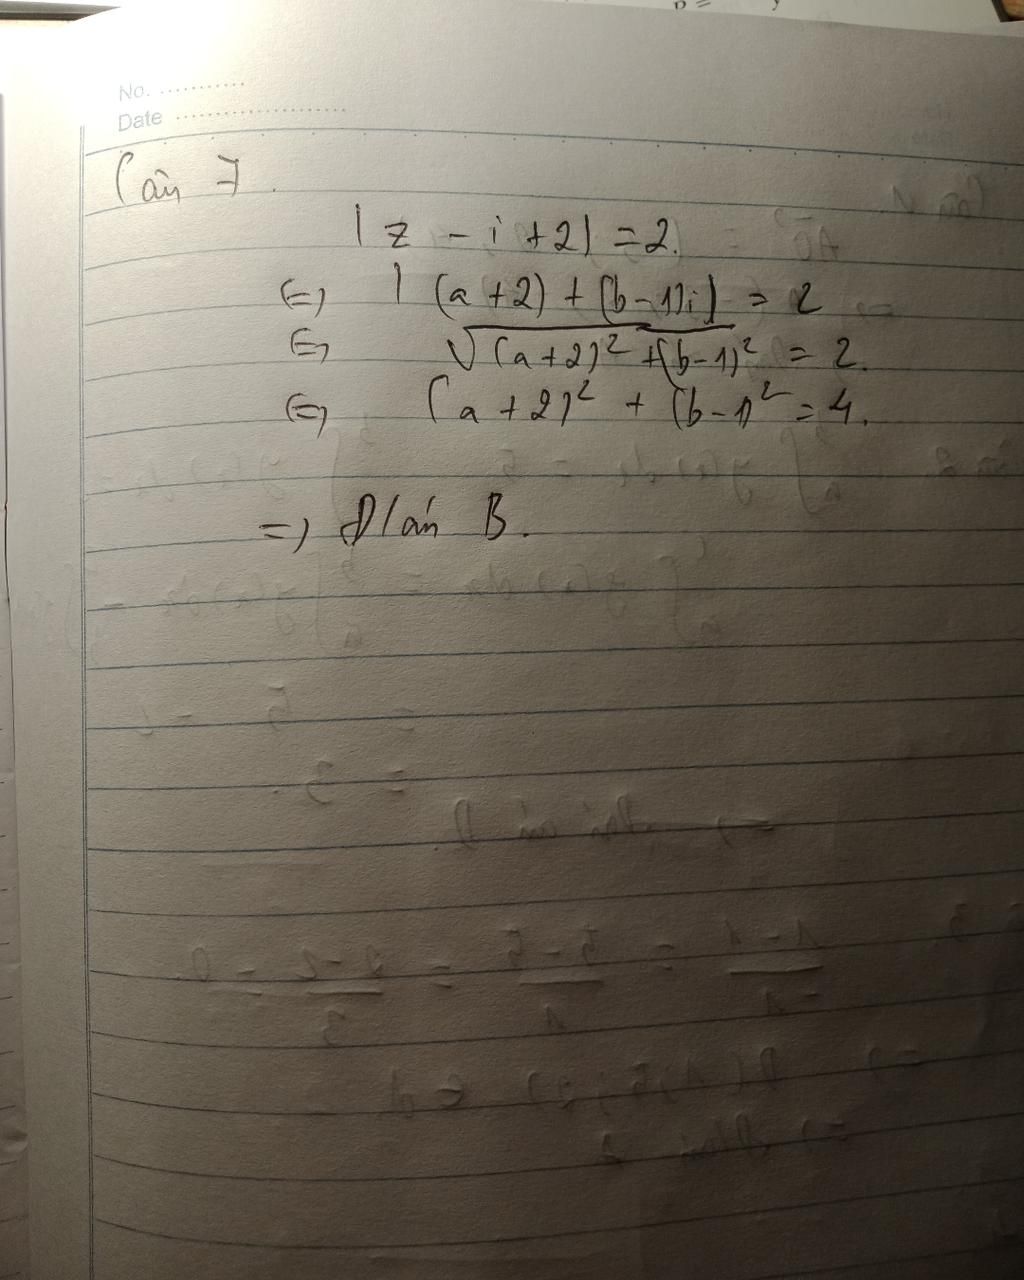 No. ...........
Date ........................
Câu 7.
| z - i + 2 | = 2.
(=) | (a + 2) + (b - 1)i | = 2
(=) √(a + 2)² + (b - 1)² = 2.
(=) (a + 2)² + (b - 1)² = 4.
=) Đ/án B.